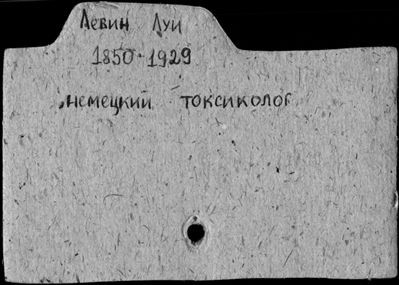 Левин Луи
1850-1929
немецкий токсиколог